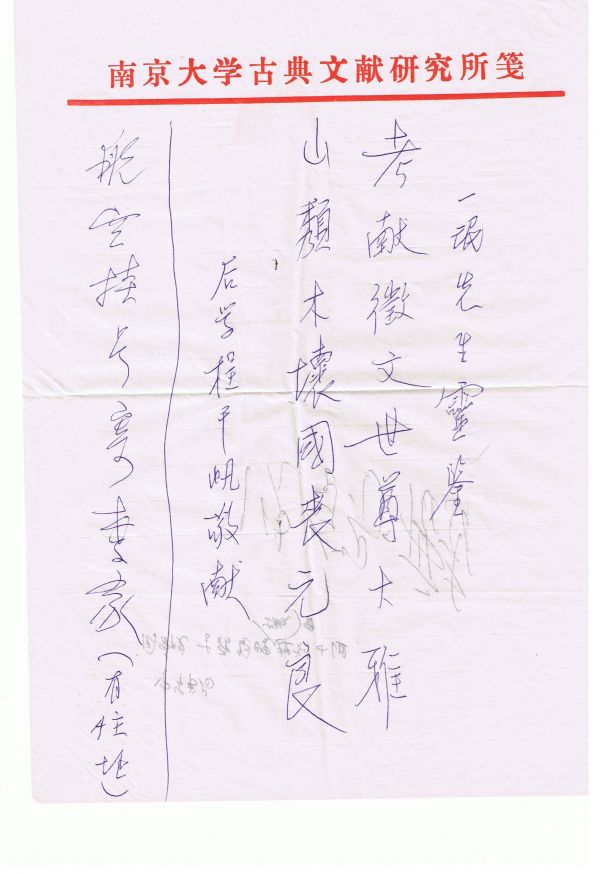 南京大学古典文献研究所笺
一氓先生靈鉴
考献徵文世尊大雅
山頹木壞國喪元良
后学程千帆敬献
航空挂号寄李家（有住址）